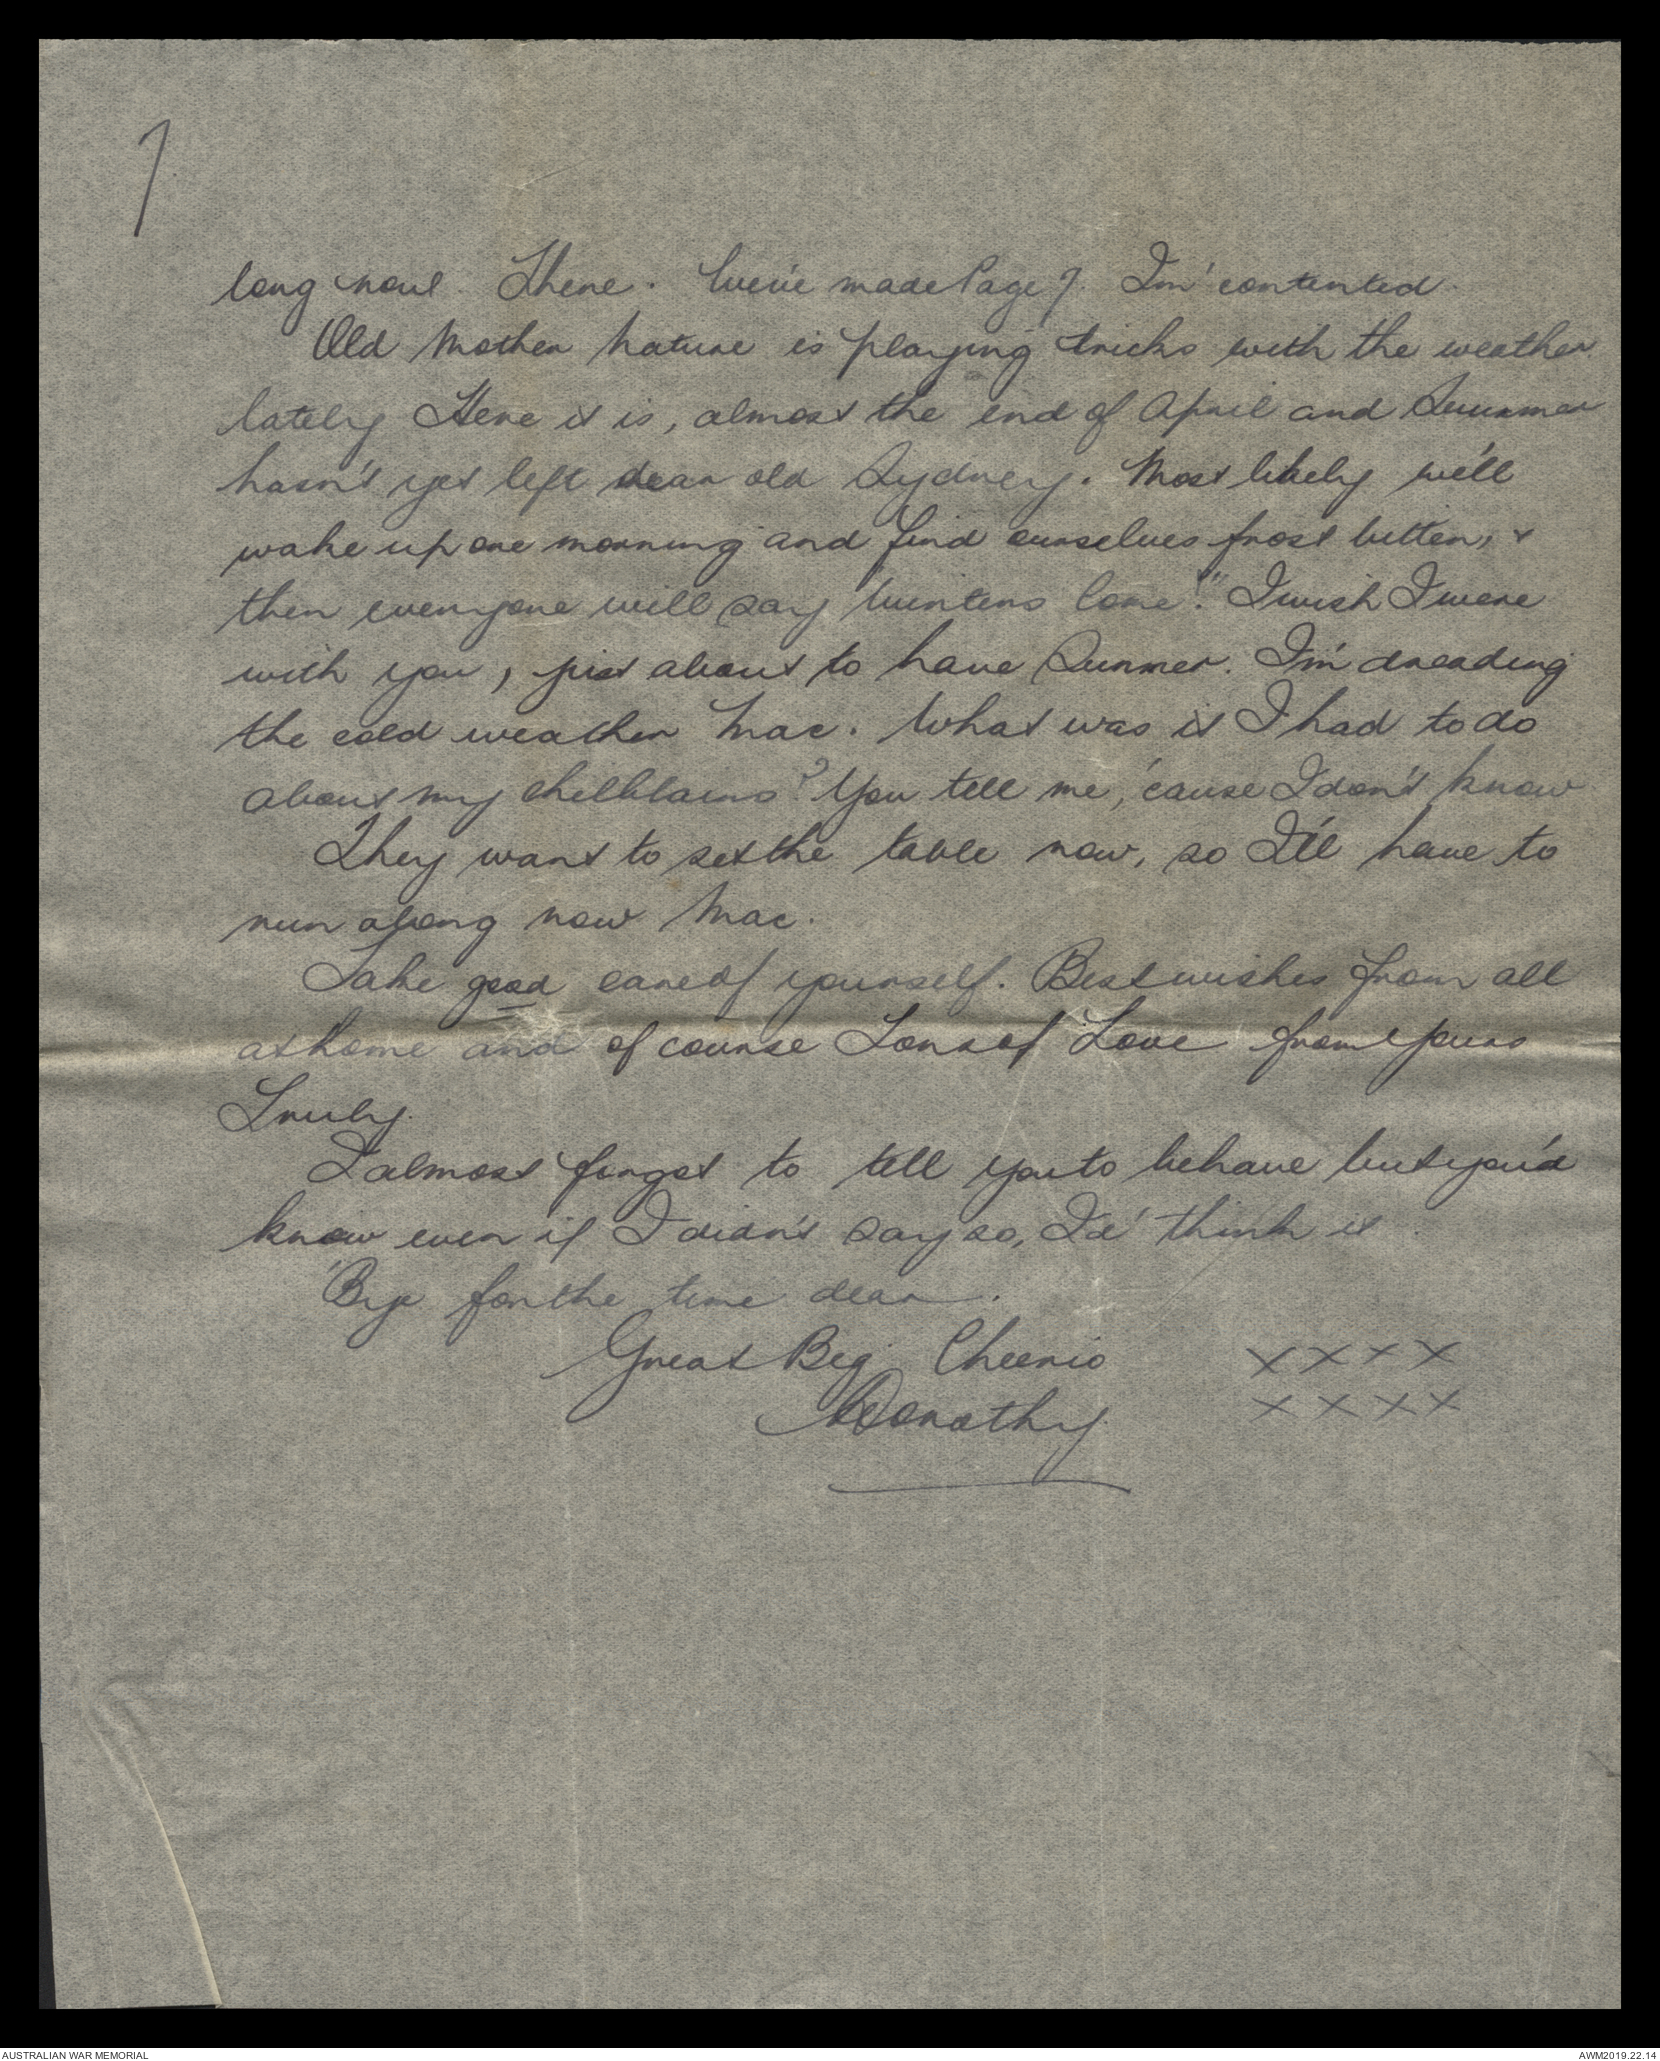 7
long now. There. We've made Page 7. I'm contented.
Old Mother Nature is playing tricks with the weather
lately Here it is, almost the end of April and Summer
hasn't yet left dear old Sydney. Most likely we'll
wake up one morning and find ourselves frost bitten, &
then everyone will say "Winters Come!" I wish I were
with you, just about to have Summer. I'm dreading
the cold weather Mac. What was it I had to do
about my chilblains? You tell me, 'cause I don't know
They want to set the table now, so I'll have to
run along now Mac.
Take good care of yourself. Best wishes from all
at home and of course Tons of Love from Yours
Truly.
I almost forgot to tell you to behave but you'd
know even if I didn't say so, I'd think it.
'Bye for the time dear.
Great Big Cheerio x x x x
Dorothy x x x x
AUSTRALIAN WAR MEMORIAL AWM2019.22.14